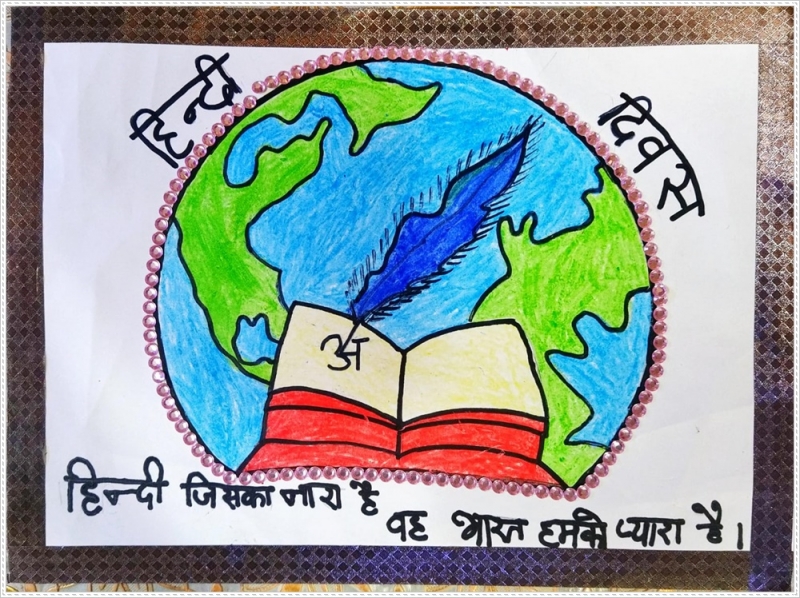 हिन्दी
दिवस
अ
हिन्दी जिसका नारा है
वह भारत हमको प्यारा है।